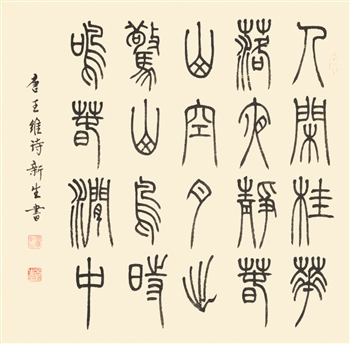 人閑桂華
落夜靜春
山空月出
驚山鳥時
鳴春澗中
唐王维诗新生書